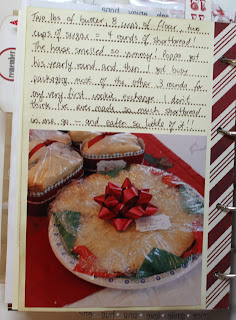 Two lbs of butter, 8 cups of flour, two
cups of sugar = 4 rounds of shortbread!
The house smelled so yummy! Poppa got
his yearly round and then I got busy
packaging most of the other 3 rounds for
my very first cookie exchange. I don't
think I've ever made so much shortbread
in one go - and eaten so little of it!!